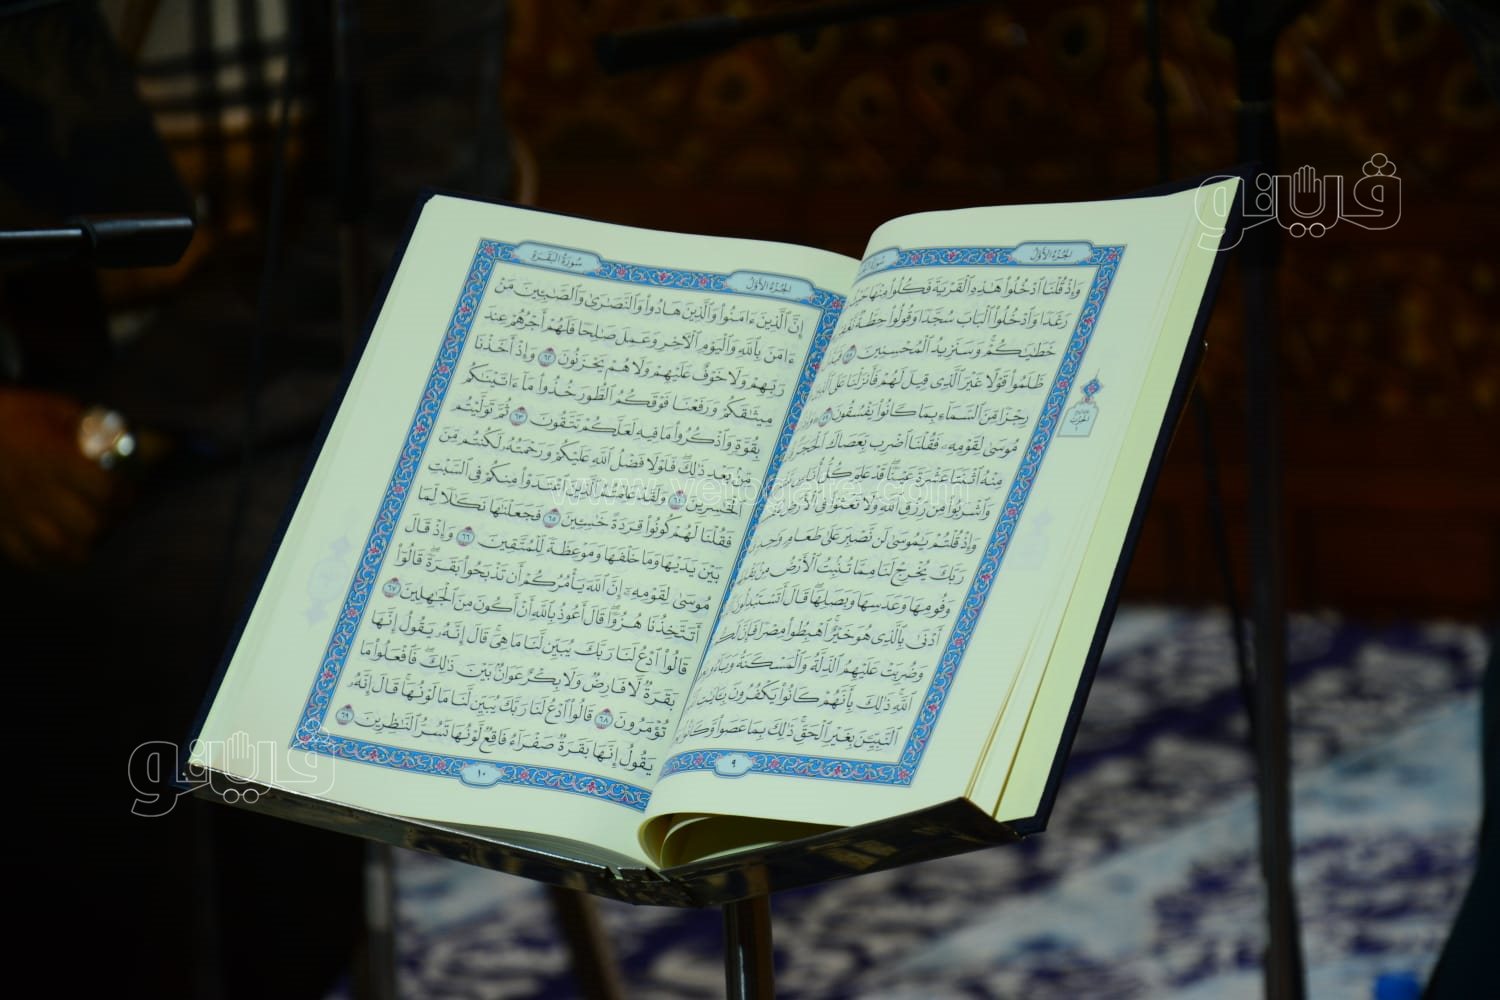 الجزء الأول
سورة البقرة
وَإِذْ قُلْنَا ٱدْخُلُوا۟ هَـٰذِهِ ٱلْقَرْيَةَ فَكُلُوا۟ مِنْهَا حَيْثُ
رَغَدًا وَٱدْخُلُوا۟ ٱلْبَابَ سُجَّدًا وَقُولُوا۟ حِطَّةٌ نَّغْفِرْ
خَطَـٰيَـٰكُمْ ۚ وَسَنَزِيدُ ٱلْمُحْسِنِينَ ٥٨ فَبَدَّلَ
ظَلَمُوا۟ قَوْلًا غَيْرَ ٱلَّذِى قِيلَ لَهُمْ فَأَنزَلْنَا عَلَى ٱلَّذِينَ
رِجْزًا مِّنَ ٱلسَّمَآءِ بِمَا كَانُوا۟ يَفْسُقُونَ ٥٩
مُوسَىٰ لِقَوْمِهِۦ فَقُلْنَا ٱضْرِب بِّعَصَاكَ ٱلْحَجَرَ
مِنْهُ ٱثْنَتَا عَشْرَةَ عَيْنًا ۖ قَدْ عَلِمَ كُلُّ أُنَاسٍ
وَٱشْرَبُوا۟ مِن رِّزْقِ ٱللَّهِ وَلَا تَعْثَوْا۟ فِى ٱلْأَرْضِ
وَإِذْ قُلْتُمْ يَـٰمُوسَىٰ لَن نَّصْبِرَ عَلَىٰ طَعَامٍ وَٰحِدٍ
رَبَّكَ يُخْرِجْ لَنَا مِمَّا تُنۢبِتُ ٱلْأَرْضُ مِنۢ
وَفُومِهَا وَعَدَسِهَا وَبَصَلِهَا ۖ قَالَ أَتَسْتَبْدِلُونَ
أَدْنَىٰ بِٱلَّذِى هُوَ خَيْرٌ ۚ ٱهْبِطُوا۟ مِصْرًا فَإِنَّ لَكُم
وَضُرِبَتْ عَلَيْهِمُ ٱلذِّلَّةُ وَٱلْمَسْكَنَةُ وَبَآءُو
ٱللَّهِ ۗ ذَٰلِكَ بِأَنَّهُمْ كَانُوا۟ يَكْفُرُونَ بِـَٔايَـٰتِ
ٱلنَّبِيِّـۧنَ بِغَيْرِ ٱلْحَقِّ ۗ ذَٰلِكَ بِمَا عَصَوا۟ وَّكَانُوا۟
٩
الجزء الأول
سورة البقرة
إِنَّ ٱلَّذِينَ ءَامَنُوا۟ وَٱلَّذِينَ هَادُوا۟ وَٱلنَّصَـٰرَىٰ وَٱلصَّـٰبِـِٔينَ مَنْ
ءَامَنَ بِٱللَّهِ وَٱلْيَوْمِ ٱلْـَٔاخِرِ وَعَمِلَ صَـٰلِحًا فَلَهُمْ أَجْرُهُمْ عِندَ
رَبِّهِمْ وَلَا خَوْفٌ عَلَيْهِمْ وَلَا هُمْ يَحْزَنُونَ ٦٢ وَإِذْ أَخَذْنَا
مِيثَـٰقَكُمْ وَرَفَعْنَا فَوْقَكُمُ ٱلطُّورَ خُذُوا۟ مَآ ءَاتَيْنَـٰكُم
بِقُوَّةٍ وَٱذْكُرُوا۟ مَا فِيهِ لَعَلَّكُمْ تَتَّقُونَ ٦٣ ثُمَّ تَوَلَّيْتُم
مِّنۢ بَعْدِ ذَٰلِكَ ۖ فَلَوْلَا فَضْلُ ٱللَّهِ عَلَيْكُمْ وَرَحْمَتُهُۥ لَكُنتُم مِّنَ
ٱلْخَـٰسِرِينَ ٦٤ وَلَقَدْ عَلِمْتُمُ ٱلَّذِينَ ٱعْتَدَوْا۟ مِنكُمْ فِى ٱلسَّبْتِ
فَقُلْنَا لَهُمْ كُونُوا۟ قِرَدَةً خَـٰسِـِٔينَ ٦٥ فَجَعَلْنَـٰهَا نَكَـٰلًا لِّمَا
بَيْنَ يَدَيْهَا وَمَا خَلْفَهَا وَمَوْعِظَةً لِّلْمُتَّقِينَ ٦٦ وَإِذْ قَالَ
مُوسَىٰ لِقَوْمِهِۦٓ إِنَّ ٱللَّهَ يَأْمُرُكُمْ أَن تَذْبَحُوا۟ بَقَرَةً ۖ قَالُوٓا۟
أَتَتَّخِذُنَا هُزُوًا ۖ قَالَ أَعُوذُ بِٱللَّهِ أَنْ أَكُونَ مِنَ ٱلْجَـٰهِلِينَ ٦٧
قَالُوا۟ ٱدْعُ لَنَا رَبَّكَ يُبَيِّن لَّنَا مَا هِىَ ۚ قَالَ إِنَّهُۥ يَقُولُ إِنَّهَا
بَقَرَةٌ لَّا فَارِضٌ وَلَا بِكْرٌ عَوَانٌۢ بَيْنَ ذَٰلِكَ ۖ فَٱفْعَلُوا۟ مَا
تُؤْمَرُونَ ٦٨ قَالُوا۟ ٱدْعُ لَنَا رَبَّكَ يُبَيِّن لَّنَا مَا لَوْنُهَا ۚ قَالَ إِنَّهُۥ
يَقُولُ إِنَّهَا بَقَرَةٌ صَفْرَآءُ فَاقِعٌ لَّوْنُهَا تَسُرُّ ٱلنَّـٰظِرِينَ ٦٩
١٠
ڤـيـتـو
ڤـيـتـو
www.vetogate.com